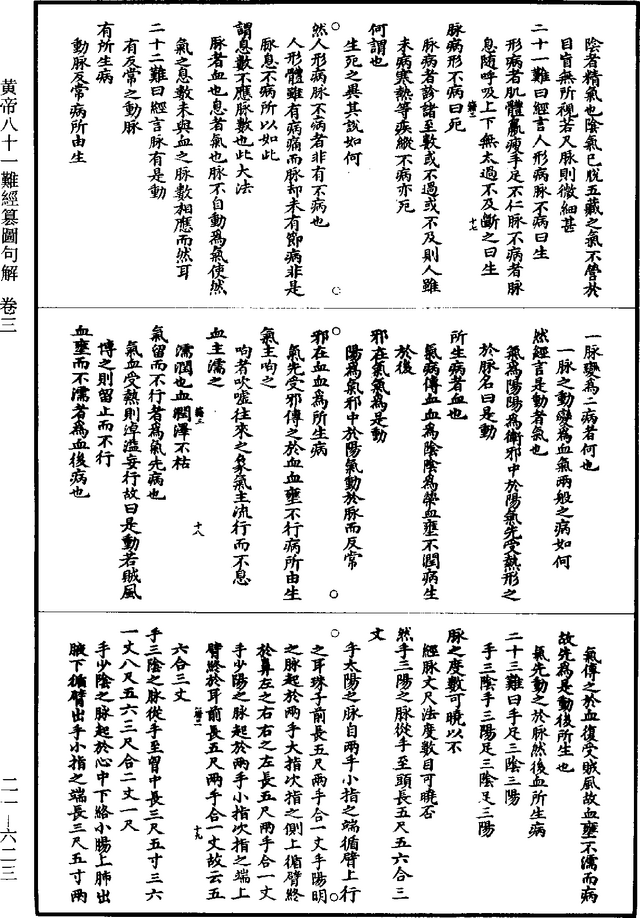 黃帝八十一難經纂圖句解 卷三
二一—六二三
陰者精氣也陰氣已脫五藏之氣不營於
目盲無所視若又脉則微細甚
二十一難曰經言人形病脉不病曰生
形病者肌體羸瘦手足不仁脉不病者脉
息隨呼吸上下無太過不及斷之曰生
脉病形不病曰死
脉病者診諸至數或不過或不及則人雖
未病寒熱等疾縱不病亦死
何謂也
生死之異其說如何
然人形病脉不病者非有不病也
人形體雖有病痛而脉却未有節病非是
脉息不病所以如此
謂息數不應脉數也此大法
脉者血也息者氣也脉不自動為氣使然
氣之息數未與血之脉數相應而然耳
二十二難曰經言脉有是動
有反常之動脉
有所生病
動脉反常病所由生
一脉變為二病者何也
一脉之動變為血氣兩般之病如何
然經言是動者氣也
氣為陽陽為衛邪中於陽氣先受熱形之
於脉名曰是動
所生病者血也
氣病傳血血為陰陰為榮血壅不潤病生
於後
邪在氣氣為是動
陽為氣邪中於陽氣動於脉而反常
邪在血血為所生病
氣先受邪傳之於血血壅不行病所由生
氣主呴之
呴者吹噓往來之象氣主流行而不息
血主濡之
濡潤也血潤澤不枯
氣留而不行者為氣先病也
氣血受熱則淖溢妄行故曰是動若賊風
博之則留止而不行
血壅而不濡者為血後病也
氣傳之於血復受賊風故血壅不濡而病
故先為是動後所生也
氣先動之於脉然後血所生病
二十三難曰手足三陰三陽
手三陰手三陽足三陰足三陽
脉之度數可曉以不
經脉丈尺法度數目可曉否
然手三陽之脉從手至頭長五尺五六合三
丈
手太陽之脉自兩手小指之端循臂上行
之耳珠子前長五尺兩手合一丈手陽明
之脉起於兩手大指次指之側上循臂終
於鼻左之右右之左長五尺兩手合一丈
手少陽之脉起於兩手小指次指之端上
臂終於耳前長五尺兩手合一丈故云五
六合三丈
手三陰之脉從手至胷中長三尺五寸三六
一丈八尺五六三尺合二丈一尺
手少陰之脉起於心中下絡小腸上肺出
腋下循臂出手小指之端長三尺五寸兩